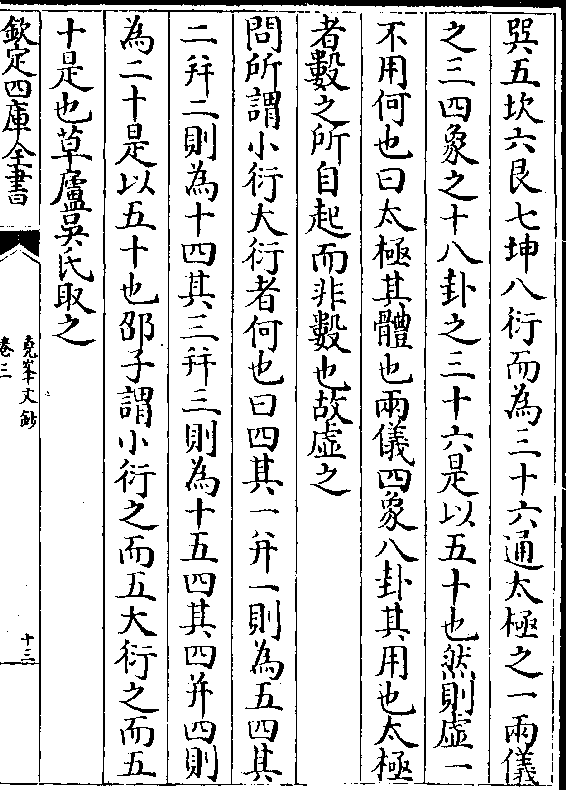 巽五坎六艮七坤八衍而為三十六通太極之一兩儀
之三四象之十八卦之三十六是以五十也然則虛一
不用何也曰太極其體也兩儀四象八卦其用也太極
者數之所自起而非數也故虛之
問所謂小衍大衍者何也曰四其一并一則為五四其
二并二則為十四其三并三則為十五四其四并四則
為二十是以五十也邵子謂小衍之而五大衍之而五
十是也草廬吳氏取之
欽定四庫全書
堯峯文鈔
卷三
十三